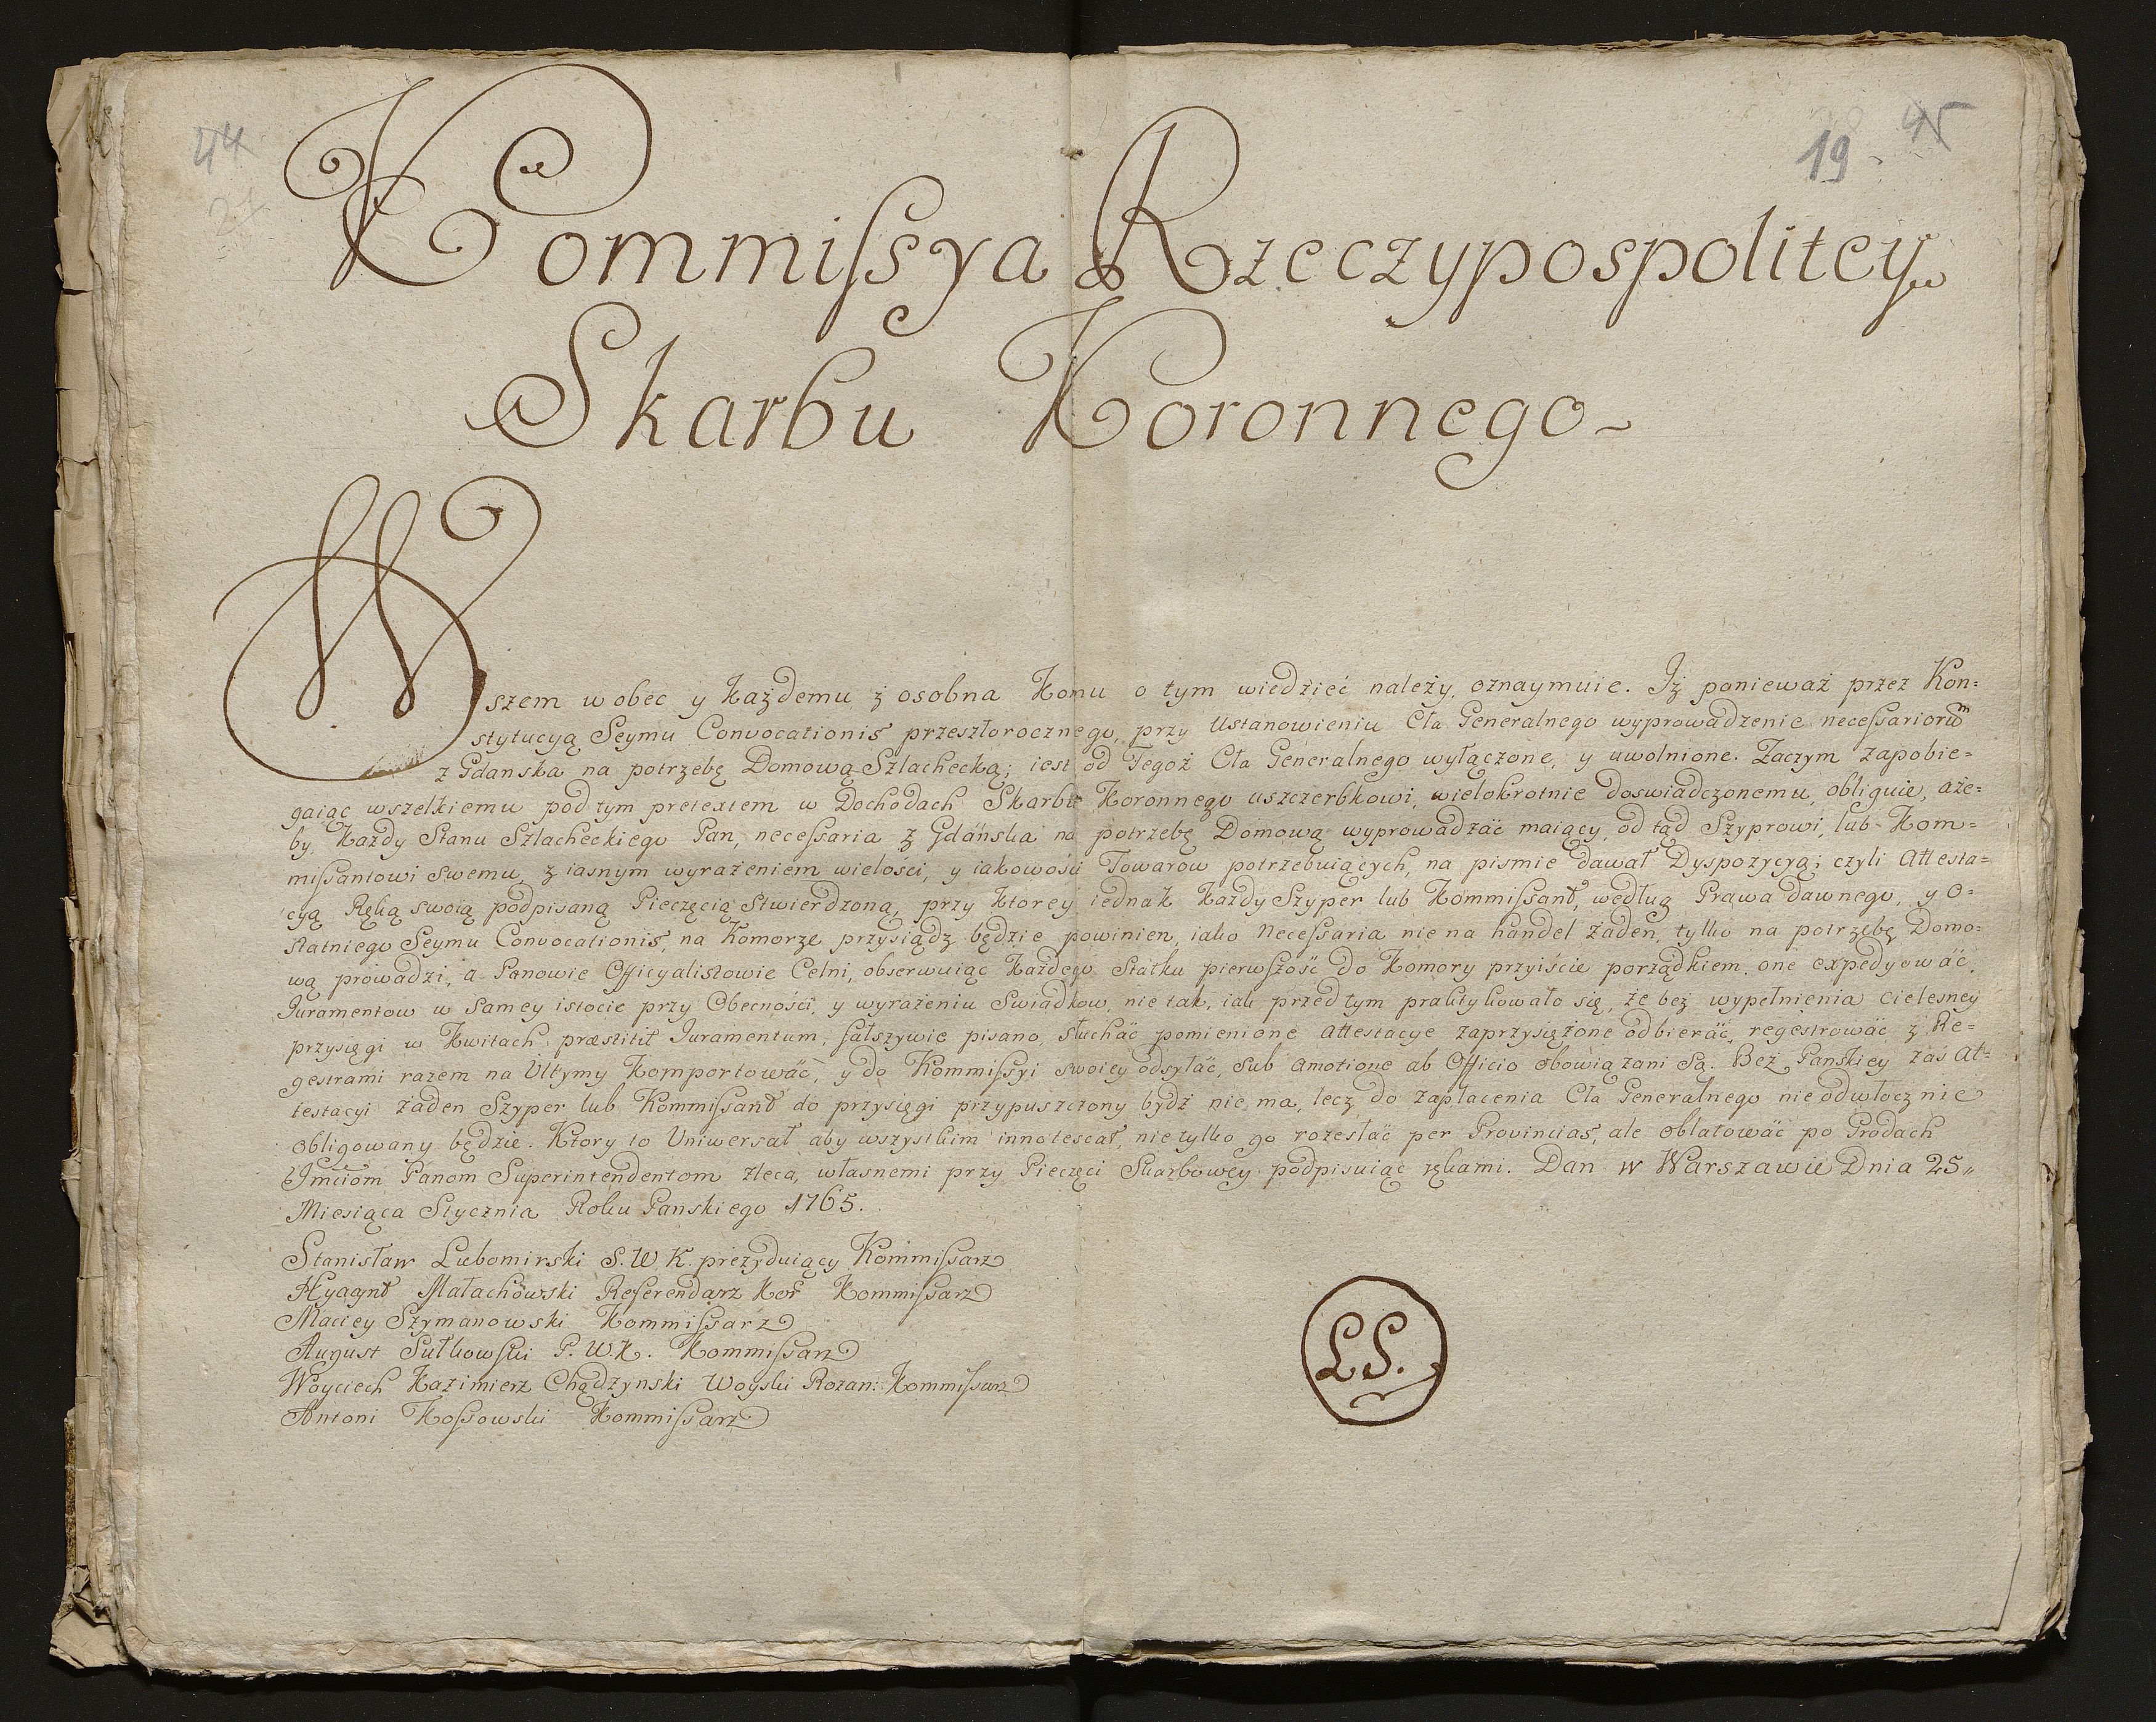 44
27
19
45
Kommiſsya Rzeczypospolitey
Skarbu Koronnego
Wszem wobec y każdemu z osobna komu o tym wiedzieć należy, oznaymuie. Iż ponieważ przez Kon=
stytucyą Seymu Convocationis przeszłorocznego, przy Ustanowieniu Cła Generalnego wyprowadzenie neceſsariorum
z Gdanska na potrzebę Domową Szlachecką; iest od Tegoż Cła Generalnego wyłączone, y uwolnione. Zaczym zapobie=
gaiąc wszelkiemu pod tym pretextem w Dochodach Skarbu Koronnego uszczerbkowi, wielokrotnie doswiadczonemu, obliguie, aże=
by każdy Stanu Szlacheckiego Pan, neceſsaria z Gdańska na potrzebę Domową wyprowadzać maiący, od tąd Szyprowi, lub Kom=
miſsantowi swemu, z iasnym wyrażeniem wielości, y iakowości Towarow potrzebuiących, na pismie dawał Dyspozycyą; czyli Attesta=
cyą Ręką swoią podpisaną Pieczęcią stwierdzoną, przy ktorey iednak każdy Szyper lub Kommiſsant, według Prawa dawnego, y o=
statniego Seymu Convocationis, na Komorze przysiądz będzie powinien, iako Neceſsaria nie na handel żaden, tylko na potrzebę Domo=
wą prowadzi, a Panowie Officyalistowie Celni, obserwuiąc każdego Statku pierwszość do Komory przyiście porządkiem, one expedyować,
Iuramentow w samey istocie przy Obecności, y wyrażeniu Swiadkow, nie tak, iak przed tym praktykowało się, że bez wypełnienia cielesney
przysięgi w Kwitach præstitit Iuramentum, fałszywie pisano, słuchać pomienione attestacye zaprzysiężone odbierać, regestrować z Re=
gestrami razem na Ultymy Komportować, y do Kommiſsyi swoiey odsyłać, sub amotione ab Officio obowiązani są. Bez Panskiey zaś at=
testacyi żaden Szyper lub Kommiſsant do przysięgi przypuszczony bydź nie ma, lecz do zapłacenia Cła Generalnego nieodwłocznie
obligowany będzie. Ktory to Uniwersał aby wszystkim innotescat, nie tylko go rozesłać per Provincias, ale oblatować po Grodach
Imciom Panom Superintendentom zleca, własnemi przy Pieczęci Skarbowey podpisuiąc rękami. Dan w Warszawie Dnia 25"
Miesiąca Stycznia Roku Panskiego 1765.
Stanisław Lubomirski S. W K. prezyduiący Kommiſsarz
Hyacynt Małachowski Referendarz Kor Kommiſsarz
Maciey Szymanowski Kommiſsarz
August Sułkowski P. W. K. Kommiſsarz
Woyciech Kazimierz Chądzynski Woyski Rozan: Kommiſsarz
Antoni Koſsowski Kommiſsarz
LS.